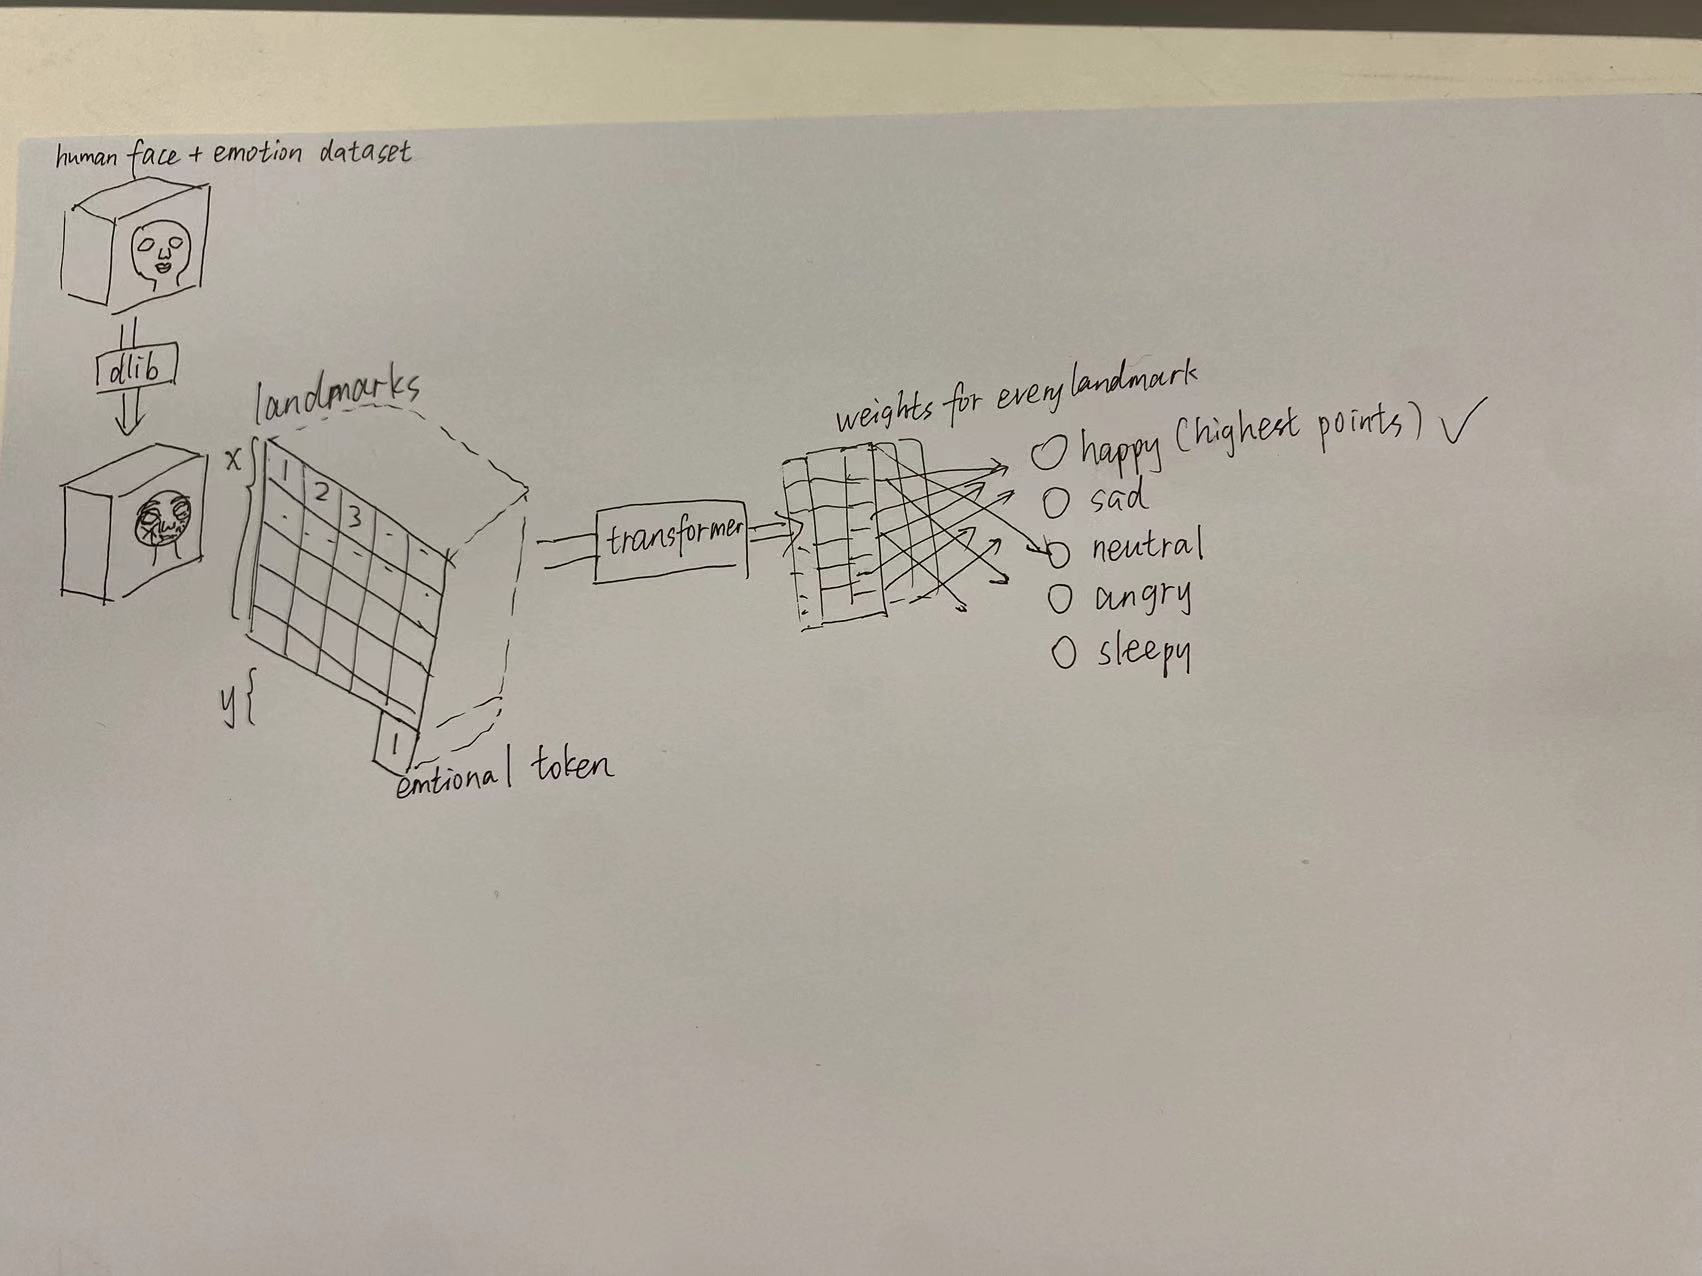 human face + emotion dataset
dlib
landmarks
x
1 2 3 - -
y
1
emtional token
transformer
weights for every landmark
happy (highest points) ✓
sad
neutral
angry
sleepy